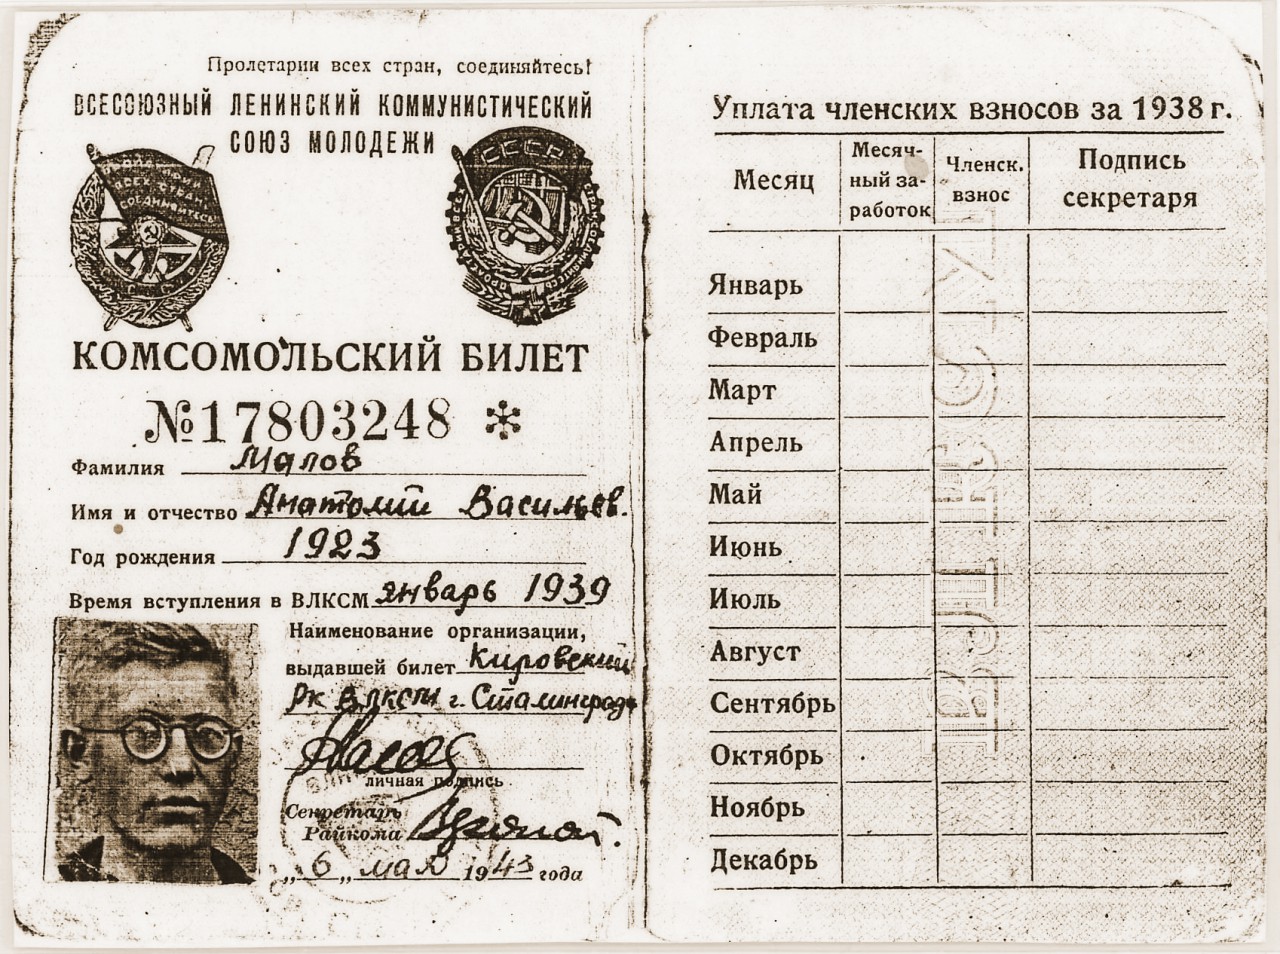 Пролетарии всех стран, соединяйтесь!
ВСЕСОЮЗНЫЙ ЛЕНИНСКИЙ КОММУНИСТИЧЕСКИЙ
СОЮЗ МОЛОДЕЖИ
СССР
КОМСОМОЛЬСКИЙ БИЛЕТ
№17803248 *
Фамилия Малов
Имя и отчество Анатолий Васильев.
Год рождения 1923
Время вступления в ВЛКСМ январь 1939
Наименование организации,
выдавшей билет Кировский
РК ВЛКСМ г. Сталинграда
личная подпись
Секретарь
Райкома
„6„ мая 1943 года
Уплата членских взносов за 1938 г.
Месяц
Месяч-
ный за-
работок
Членск.
взнос
Подпись
секретаря
Январь
Февраль
Март
Апрель
Май
Июнь
Июль
Август
Сентябрь
Октябрь
Ноябрь
Декабрь